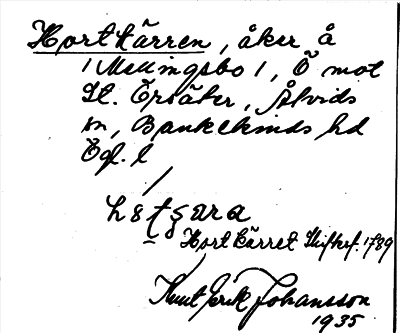 Hortkärren, åker å
1 Mellingsbo 1, Ö mot
St. Örsäter, Åtvids
sn, Bankekinds hd
Ögl. l
Hortkärret Skifhsf. 1789
Knut Erik Johansson
1935